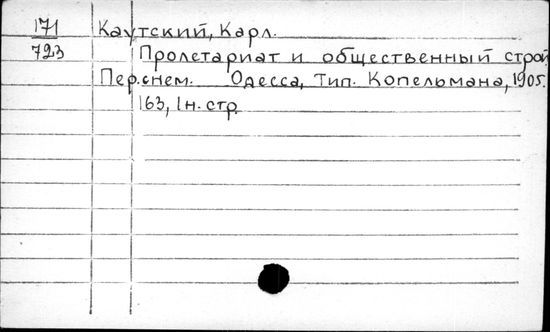 171
723
Каутский, Карл.
Пролетариат и общественный строй
Пер.снем. Одесса, Тип. Копельмана, 1905.
163, 1н.стр.